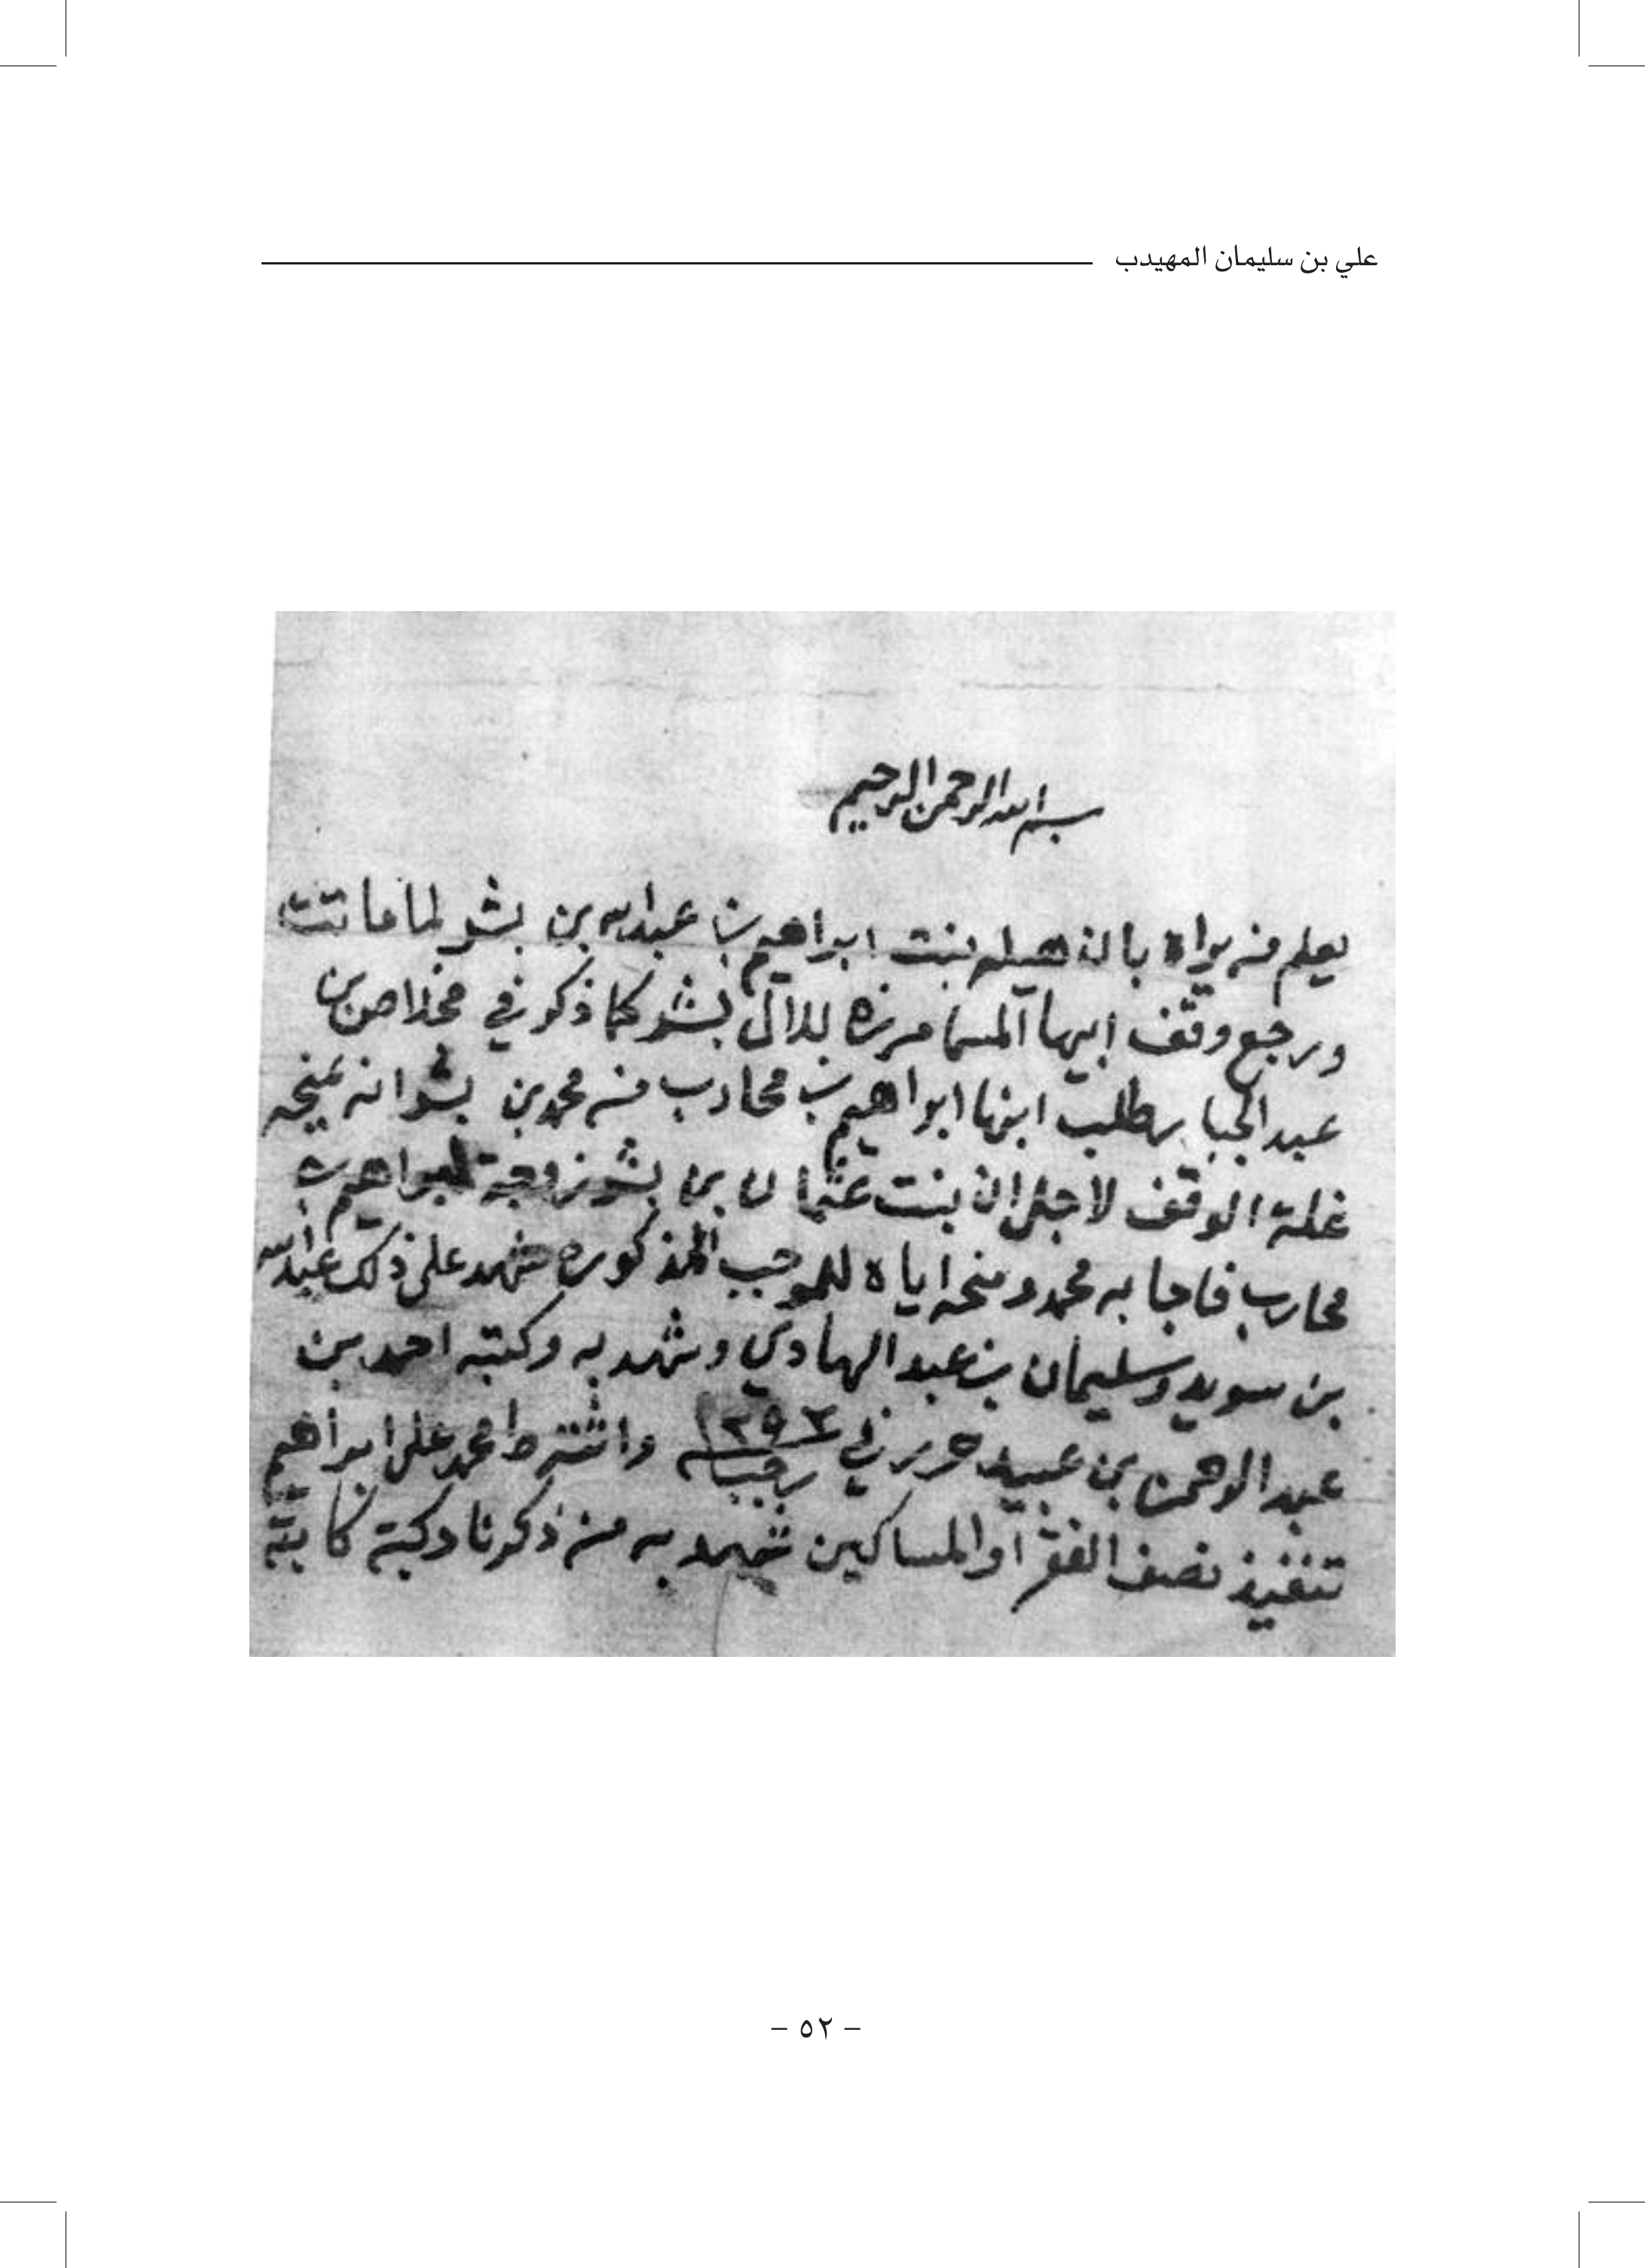 علي بن سليمان المهيدب
بسم الله الرحمن الرحيم
يعلم من يراه بان هيله بنت ابراهيم بن عبدالله بن بشر لما ماتت
ورجع وقف ابيها المسما مرزه لال بشر كما ذكر في مخلاص بن
عبد الجبار طلب ابنها ابراهيم بن محارب من محمد بن بشر انه يمنحه
غلة الوقف لاجل ان بنت عثمان بن بشر زوجة ابراهيم بن
محارب فاجابه محمد ومنحه اياه للموجب المذكوره شهد على ذلك عبدالله
بن سويد وسليمان بن عبد الهادي وشهد به وكتبه احمد بن
عبد الرحمن بن عبيد حرر في رجب ١٢٥٣ واشترط محمد على ابراهيم
تنفيذ نصف الفقرا والمساكين شهد به من ذكرنا وكتبه كاتبه
- ٥٢ -